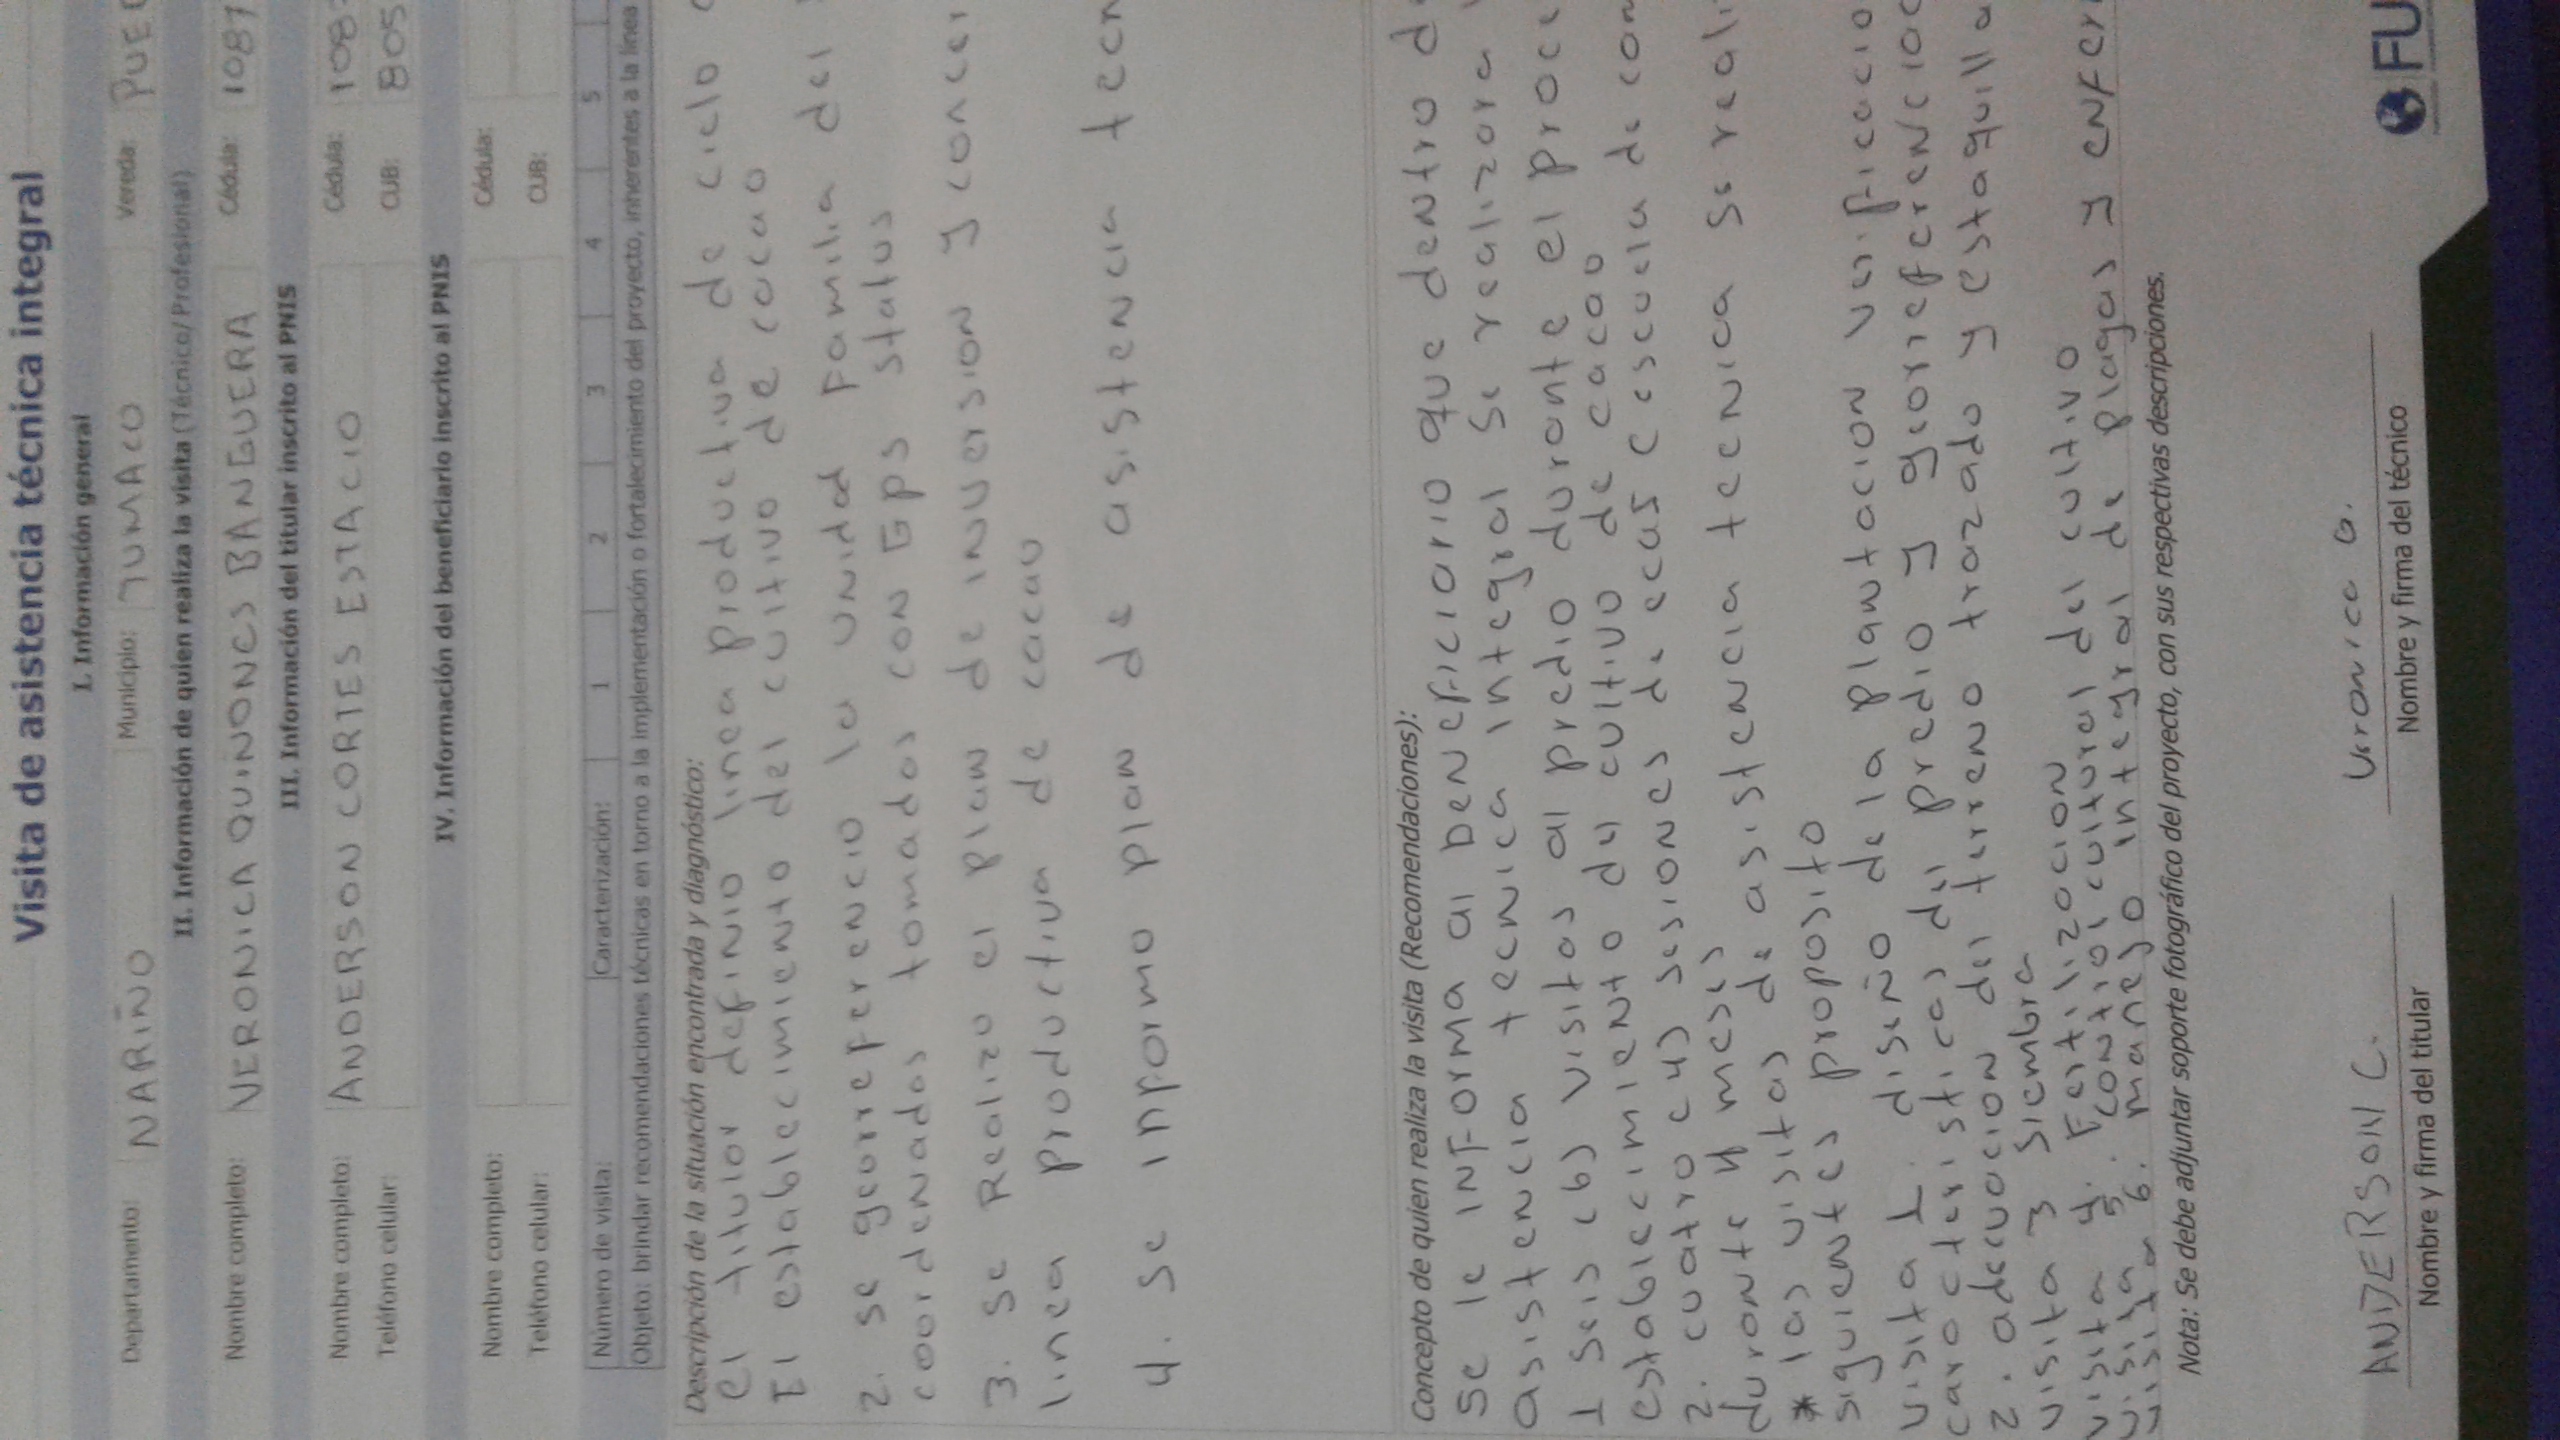 Visita de asistencia técnica integral
I. Información general
Departamento: NARIÑO Municipio: TUMACO Vereda:
II. Información de quien realiza la visita (Técnico/Profesional)
Nombre completo: VERONICA QUIÑONES BANGUERA Cédula: 1087
III. Información del titular inscrito al PNIS
Nombre completo: ANDERSON CORTES ESTACIO Cédula: 108
Teléfono celular: CUB: 805
IV. Información del beneficiario inscrito al PNIS
Nombre completo: Cédula:
Teléfono celular: CUB:
Número de visita: Caracterización: 1 2 3 4 5
Objeto: brindar recomendaciones técnicas en torno a la implementación o fortalecimiento del proyecto, inherentes a la línea
Descripción de la situación encontrada y diagnóstico:
El titular definio linea productiva de ciclo
El establecimiento del cultivo de cacao
2. se georreferencio la unidad Familia del
coordenadas tomadas con Gps status
3. Se Realizo el plan de inversion y
linea productiva de cacao
4. Se informo plan de asistencia
Concepto de quien realiza la visita (Recomendaciones):
Se le informa al beneficiario que dentro
asistencia tecnica integral se realizara
1 seis (6) visitas al predio durante el
establecimiento del cultivo de cacao
2. cuatro (4) sesiones de ecas (escuela de
durante 4 meses
* las visitas de asistencia tecnica se
siguientes proposito
visita 1. diseño de la plantacion
caracteristicas del predio y
2. adecuacion del terreno trazado y
visita 3 siembra
visita 4. Fertilizacion
visita 5. control cultural del cultivo
visita 6. manejo integral de plagas y
Nota: Se debe adjuntar soporte fotográfico del proyecto, con sus respectivas descripciones.
ANDERSON C. Veronica Q.
Nombre y firma del titular Nombre y firma del técnico
FU